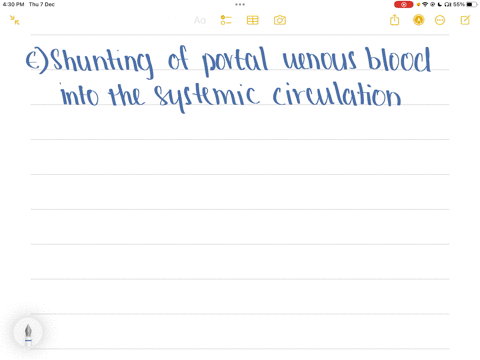 4:30 PM Thu 7 Dec
55%
Aa
E) Shunting of portal venous blood
into the systemic circulation